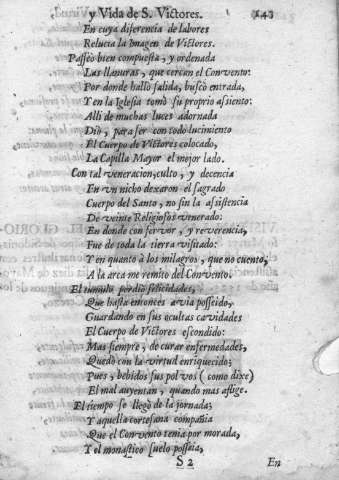 y Vida de S. Victores. 141
En cuya diferencia de labores
Relucia la Imagen de Victores.
Passeò bien compuesta, y ordenada
Las llanuras, que cercan el Convento:
Por donde hallò salida, buscò entrada,
Y en la Iglesia tomò su proprio assiento:
Alli de muchas luces adornada
Diò, para ser con todo lucimiento
El Cuerpo de Victores colocado,
La Capilla Mayor el mejor lado.
Con tal veneracion, culto, y decencia
En vn nicho dexaron el sagrado
Cuerpo del Santo, no sin la assistencia
De veinte Religiosos venerado:
En donde con fervor, y reverencia,
Fue de toda la tierra visitado:
Y en quanto à los milagros, que no cuento,
A la arca me remito del Convento.
El tumulo perdiò felicidades,
Que hasta entonces avia posseido,
Guardando en sus ocultas cavidades
El Cuerpo de Victores escondido:
Mas siempre, de curar enfermedades,
Quedò con la virtud enriquecido;
Pues, bebidos sus polvos (como dixe)
El mal auyentan, quando mas aflige.
El tiempo se llegò de la jornada;
Y aquella cortesana compañia
Que el Convento tenia por morada,
Y el monastico suelo posseia,
S 2 En